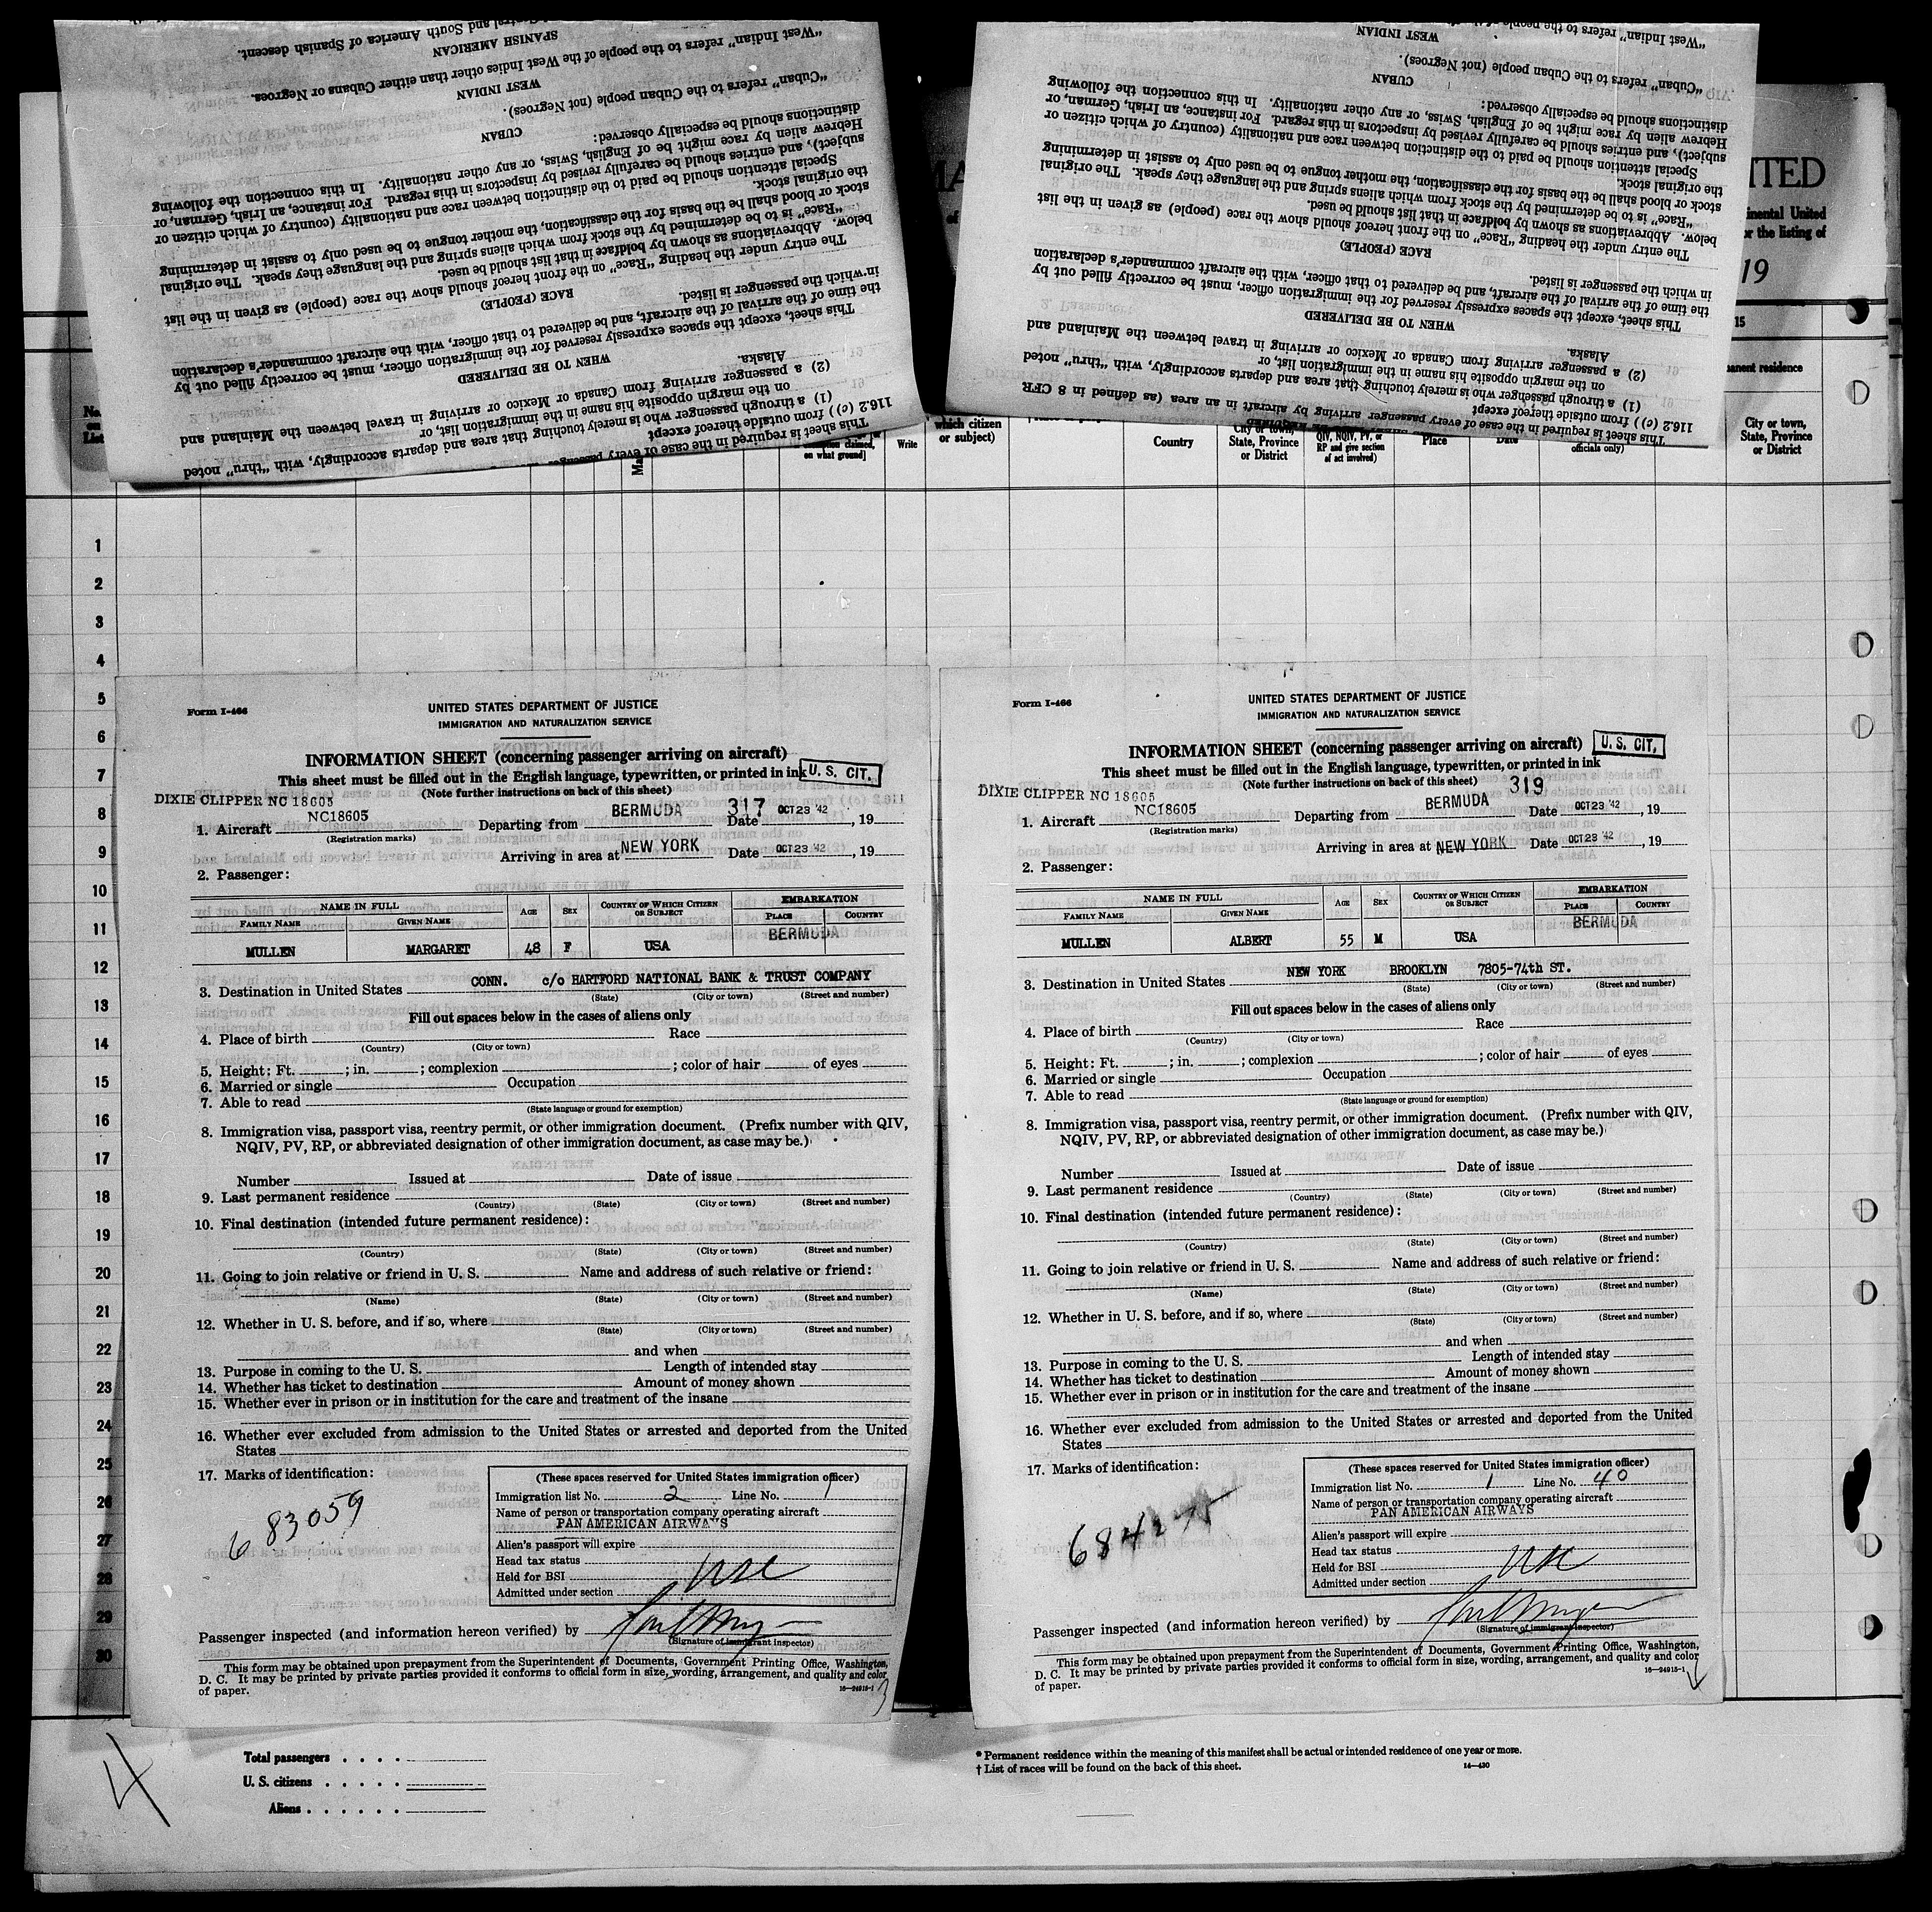 and South America of Spanish descent.
SPANISH AMERICAN
"West Indian" refers to the people of the West Indies other than either Cubans or Negroes.
WEST INDIAN
"Cuban" refers to the Cuban people (not Negroes).
CUBAN
distinctions should be especially observed:
Hebrew alien by race might be of English, Swiss, or any other nationality. In this connection the following
subject), and entries should be carefully revised by inspectors in this regard. For instance, an Irish, German, or
Special attention should be paid to the distinction between race and nationality (country of which citizen or
the original stock.
stock or blood shall be the basis for the classification, the mother tongue to be used only to assist in determining
"Race" is to be determined by the stock from which aliens spring and the language they speak. The original
below. Abbreviations as shown by boldface in that list should be used.
The entry under the heading "Race" on the front hereof should show the race (people) as given in the list
RACE (PEOPLE)
in which the passenger is listed.
the time of the arrival of the aircraft, and be delivered to that officer, with the aircraft commander's declaration
This sheet, except the spaces expressly reserved for the immigration officer, must be correctly filled out by
WHEN TO BE DELIVERED
Alaska.
(2) a passenger arriving from Canada or Mexico or arriving in travel between the Mainland and
on the margin opposite his name in the immigration list, or
(1) a through passenger who is merely touching that area and departs accordingly, with "thru" noted
116.2 (c)) from outside thereof except
This sheet is required in the case of every passenger
"West Indian" refers to the people of
WEST INDIAN
"Cuban" refers to the Cuban people (not Negroes).
CUBAN
distinctions should be especially observed:
Hebrew alien by race might be of English, Swiss, or any other nationality. In this connection the following
subject), and entries should be carefully revised by inspectors in this regard. For instance, an Irish, German, or
Special attention should be paid to the distinction between race and nationality (country of which citizen or
the original stock.
stock or blood shall be the basis for the classification, the mother tongue to be used only to assist in determining
"Race" is to be determined by the stock from which aliens spring and the language they speak. The original
below. Abbreviations as shown by boldface in that list should be used.
The entry under the heading "Race" on the front hereof should show the race (people) as given in the list
RACE (PEOPLE)
in which the passenger is listed.
the time of the arrival of the aircraft, and be delivered to that officer, with the aircraft commander's declaration
This sheet, except the spaces expressly reserved for the immigration officer, must be correctly filled out by
WHEN TO BE DELIVERED
Alaska.
(2) a passenger arriving from Canada or Mexico or arriving in travel between the Mainland and
on the margin opposite his name in the immigration list, or
(1) a through passenger who is merely touching that area and departs accordingly, with "thru" noted
116.2 (c)) from outside thereof except
This sheet is required in the case of every passenger arriving by aircraft in an area (as defined in 8 CFR
ITED
inental United
or the listing of
19
15
anent residence
No. on List
on what ground]
Write
which citizen or subject)
Country
City or town, State, Province or District
QIV, NQIV, PV, or RP and give section of act involved)
Place
Date
officials only)
City or town, State, Province or District
1
2
3
4
5
6
7
8
9
10
11
12
13
14
15
16
17
18
19
20
21
22
23
24
25
26
27
28
29
30
Form I-466
UNITED STATES DEPARTMENT OF JUSTICE
IMMIGRATION AND NATURALIZATION SERVICE
INFORMATION SHEET (concerning passenger arriving on aircraft)
This sheet must be filled out in the English language, typewritten, or printed in ink
U. S. CIT.
(Note further instructions on back of this sheet)
DIXIE CLIPPER NC 18605
1. Aircraft NC18605 Departing from BERMUDA 317 Date OCT 23 '42, 19
(Registration marks)
Arriving in area at NEW YORK Date OCT 23 '42, 19
2. Passenger:
NAME IN FULL AGE SEX COUNTRY OF WHICH CITIZEN OR SUBJECT EMBARKATION
FAMILY NAME GIVEN NAME PLACE COUNTRY
MULLEN MARGARET 48 F USA BERMUDA
3. Destination in United States CONN. c/o HARTFORD NATIONAL BANK & TRUST COMPANY
(State) (City or town) (Street and number)
Fill out spaces below in the cases of aliens only
4. Place of birth Race
(Country) (City or town)
5. Height: Ft. ; in. ; complexion ; color of hair of eyes
6. Married or single Occupation
7. Able to read
(State language or ground for exemption)
8. Immigration visa, passport visa, reentry permit, or other immigration document. (Prefix number with QIV,
NQIV, PV, RP, or abbreviated designation of other immigration document, as case may be.)
Number Issued at Date of issue
9. Last permanent residence
(Country) (State) (City or town) (Street and number)
10. Final destination (intended future permanent residence):
(Country) (State) (City or town) (Street and number)
11. Going to join relative or friend in U. S. Name and address of such relative or friend:
(Name) (State) (City or town) (Street and number)
12. Whether in U. S. before, and if so, where
(State) (City or town) (Street and number)
and when
13. Purpose in coming to the U. S. Length of intended stay
14. Whether has ticket to destination Amount of money shown
15. Whether ever in prison or in institution for the care and treatment of the insane
16. Whether ever excluded from admission to the United States or arrested and deported from the United
States
17. Marks of identification:
683059
(These spaces reserved for United States immigration officer)
Immigration list No. 2 Line No. 1
Name of person or transportation company operating aircraft
PAN AMERICAN AIRWAYS
Alien's passport will expire
Head tax status
Held for BSI
Admitted under section
Passenger inspected (and information hereon verified) by
(Signature of immigrant inspector)
This form may be obtained upon prepayment from the Superintendent of Documents, Government Printing Office, Washington,
D. C. It may be printed by private parties provided it conforms to official form in size, wording, arrangement, and quality and color
of paper.
16—24915-1
Form I-466
UNITED STATES DEPARTMENT OF JUSTICE
IMMIGRATION AND NATURALIZATION SERVICE
INFORMATION SHEET (concerning passenger arriving on aircraft)
U. S. CIT.
This sheet must be filled out in the English language, typewritten, or printed in ink
(Note further instructions on back of this sheet) 319
DIXIE CLIPPER NC 18605
1. Aircraft NC18605 Departing from BERMUDA Date OCT 23 '42, 19
(Registration marks)
Arriving in area at NEW YORK Date OCT 23 '42, 19
2. Passenger:
NAME IN FULL AGE SEX COUNTRY OF WHICH CITIZEN OR SUBJECT EMBARKATION
FAMILY NAME GIVEN NAME PLACE COUNTRY
MULLEN ALBERT 55 M USA BERMUDA
3. Destination in United States NEW YORK BROOKLYN 7805-74th ST.
(State) (City or town) (Street and number)
Fill out spaces below in the cases of aliens only
4. Place of birth Race
(Country) (City or town)
5. Height: Ft. ; in. ; complexion ; color of hair of eyes
6. Married or single Occupation
7. Able to read
(State language or ground for exemption)
8. Immigration visa, passport visa, reentry permit, or other immigration document. (Prefix number with QIV,
NQIV, PV, RP, or abbreviated designation of other immigration document, as case may be.)
Number Issued at Date of issue
9. Last permanent residence
(Country) (State) (City or town) (Street and number)
10. Final destination (intended future permanent residence):
(Country) (State) (City or town) (Street and number)
11. Going to join relative or friend in U. S. Name and address of such relative or friend:
(Name) (State) (City or town) (Street and number)
12. Whether in U. S. before, and if so, where
(State) (City or town) (Street and number)
and when
13. Purpose in coming to the U. S. Length of intended stay
14. Whether has ticket to destination Amount of money shown
15. Whether ever in prison or in institution for the care and treatment of the insane
16. Whether ever excluded from admission to the United States or arrested and deported from the United
States
17. Marks of identification:
(These spaces reserved for United States immigration officer)
Immigration list No. 1 Line No. 40
Name of person or transportation company operating aircraft
PAN AMERICAN AIRWAYS
Alien's passport will expire
Head tax status
Held for BSI
Admitted under section
Passenger inspected (and information hereon verified) by
(Signature of immigrant inspector)
This form may be obtained upon prepayment from the Superintendent of Documents, Government Printing Office, Washington,
D. C. It may be printed by private parties provided it conforms to official form in size, wording, arrangement, and quality and color
of paper.
16—24915-1
4
Total passengers
U. S. citizens
Aliens
* Permanent residence within the meaning of this manifest shall be actual or intended residence of one year or more.
† List of races will be found on the back of this sheet.
14—420